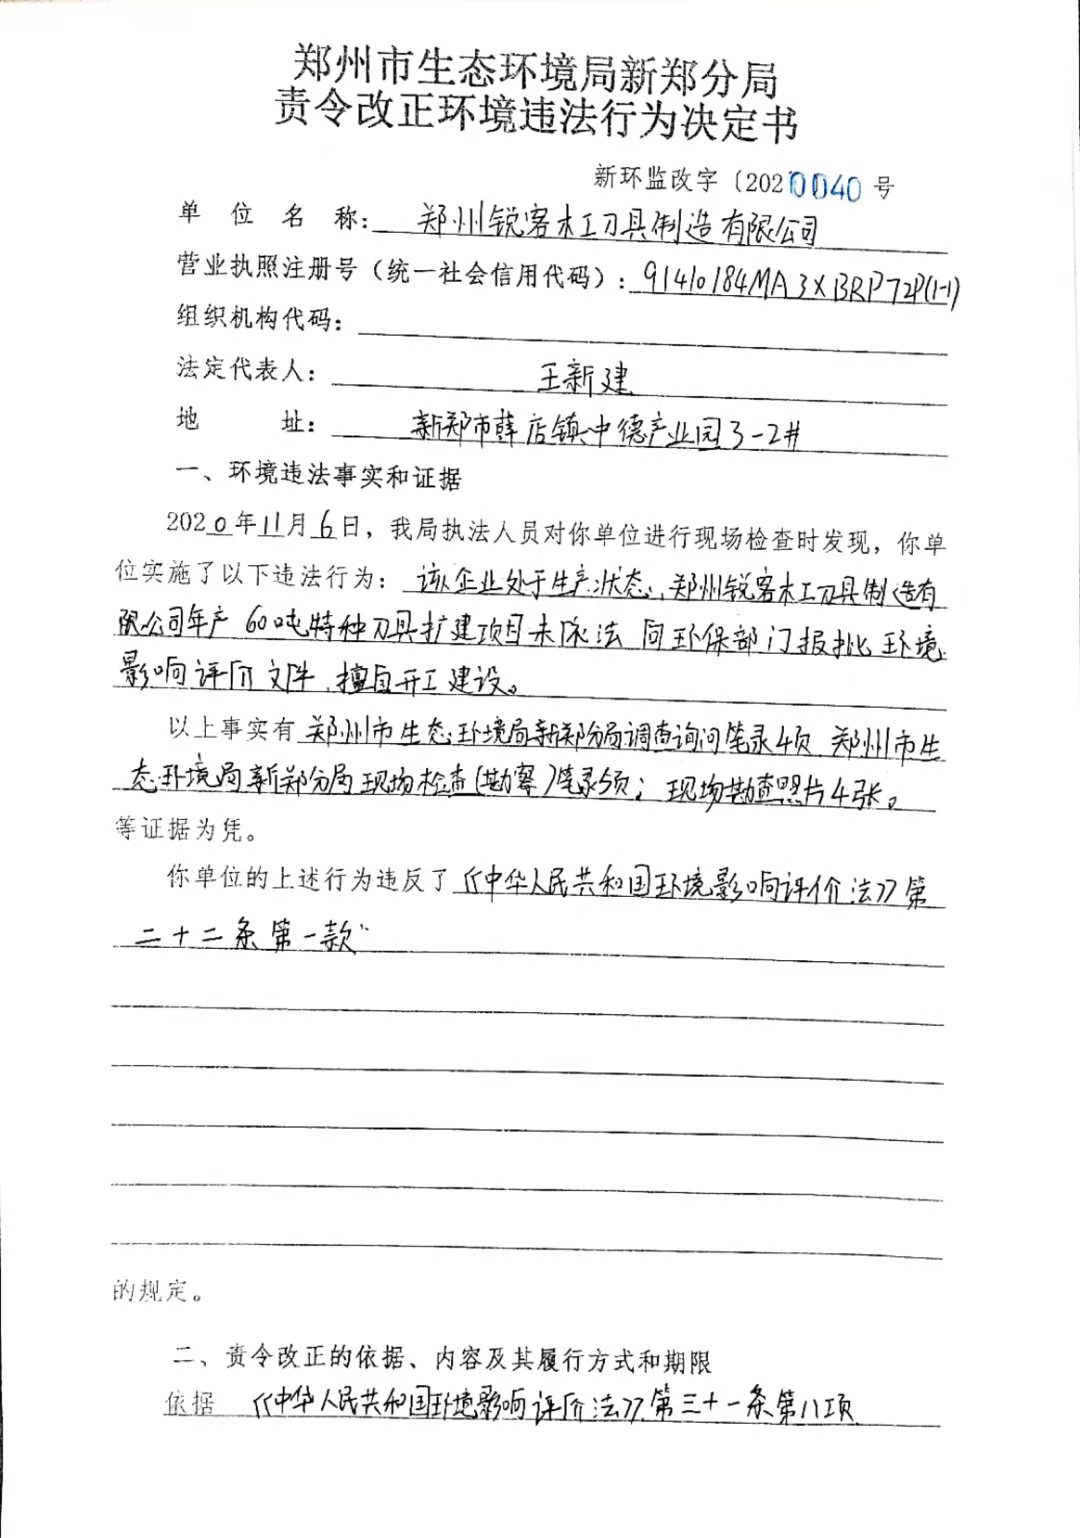 郑州市生态环境局新郑分局
责令改正环境违法行为决定书
新环监改字〔2020040号
单位名称：郑州锐客木工刀具制造有限公司
营业执照注册号（统一社会信用代码）：91410184MA3XBRP72P(1-1)
组织机构代码：
法定代表人：王新建
地址：新郑市薛店镇中德产业园3-2#
一、环境违法事实和证据
2020年11月6日，我局执法人员对你单位进行现场检查时发现，你单
位实施了以下违法行为：该企业处于生产状态，郑州锐客木工刀具制造有
限公司年产60吨特种刀具扩建项目未依法向环保部门报批环境
影响评价文件，擅自开工建设。
以上事实有郑州市生态环境局新郑分局调查询问笔录4页 郑州市生
态环境局新郑分局现场检查(勘察)笔录5页；现场勘查照片4张。
等证据为凭。
你单位的上述行为违反了《中华人民共和国环境影响评价法》第
二十二条第一款"
的规定。
二、责令改正的依据、内容及其履行方式和期限
依据《中华人民共和国环境影响评价法》第三十一条第八项